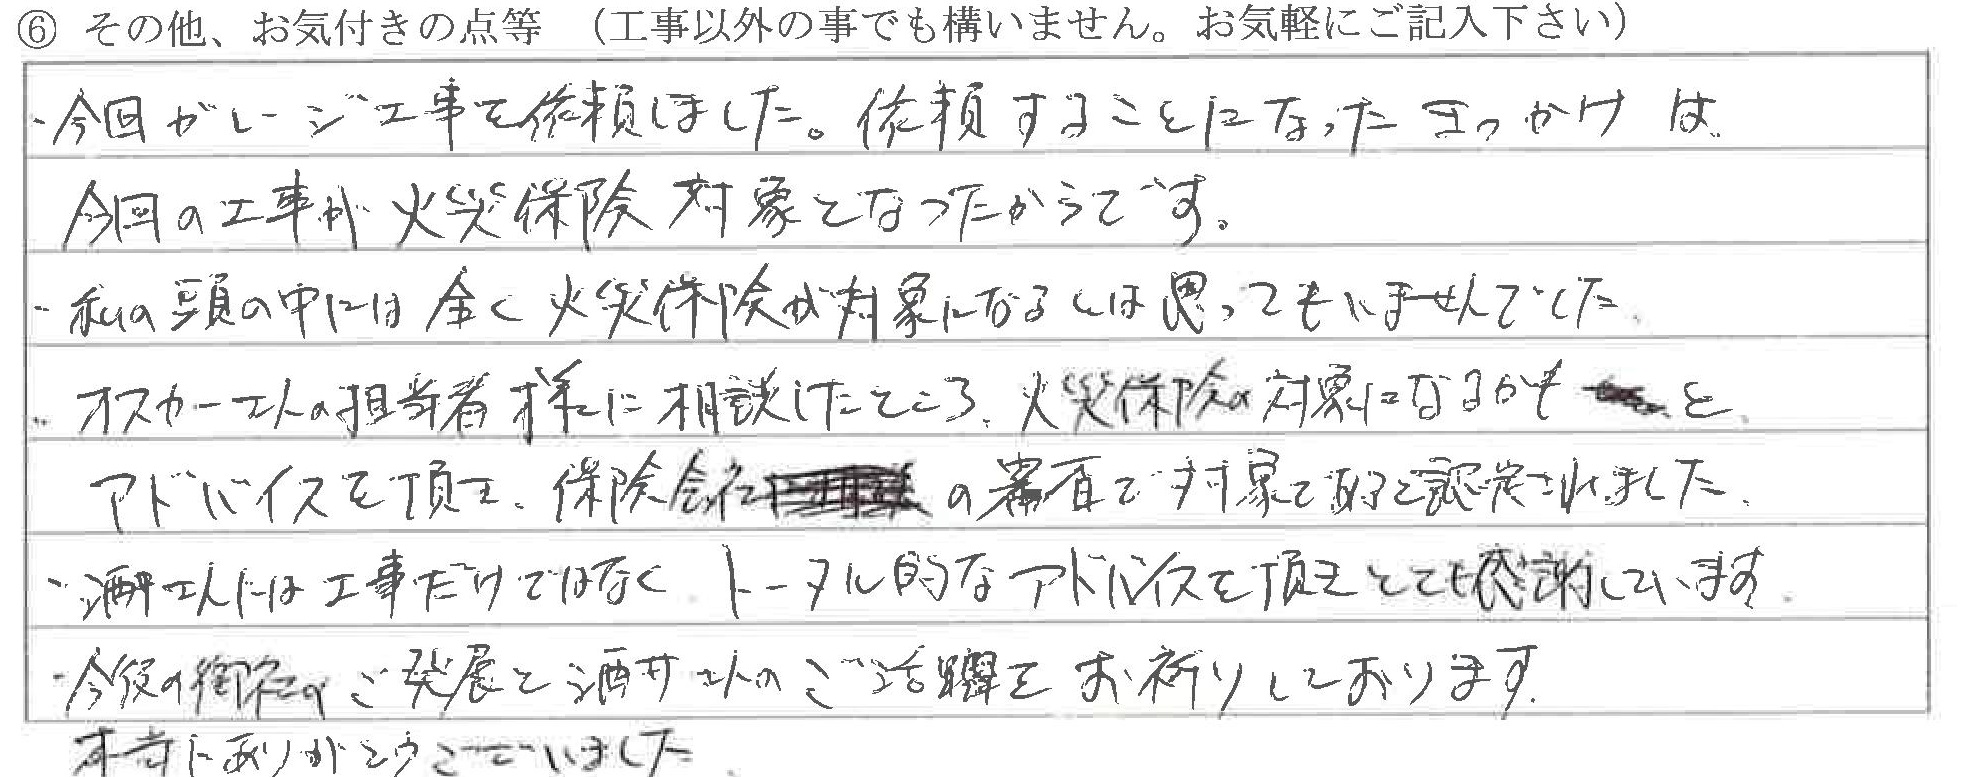 ⑥ その他、お気付きの点等 （工事以外の事でも構いません。お気軽にご記入下さい）
・今回ガレージ工事を依頼しました。依頼することになったきっかけは
今回の工事が火災保険対象となったからです。
・私の頭の中には全く火災保険が対象になるとは思ってもいませんでした。
・オスカーさんの担当者様に相談したところ、火災保険の対象になるかもと
アドバイスを頂き、保険会社の審査で対象であると認定されました。
・酒井さんには工事だけではなく、トータル的なアドバイスを頂きとても感謝しています。
・今後の御社のご発展と酒井さんのご活躍をお祈りしております。
本当にありがとうございました。